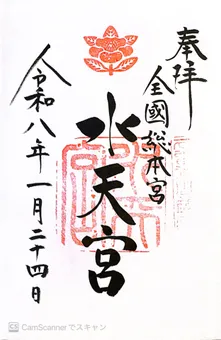 奉拝
全國総本宮
水天宮
令和八年一月二十四日
CS CamScanner でスキャン